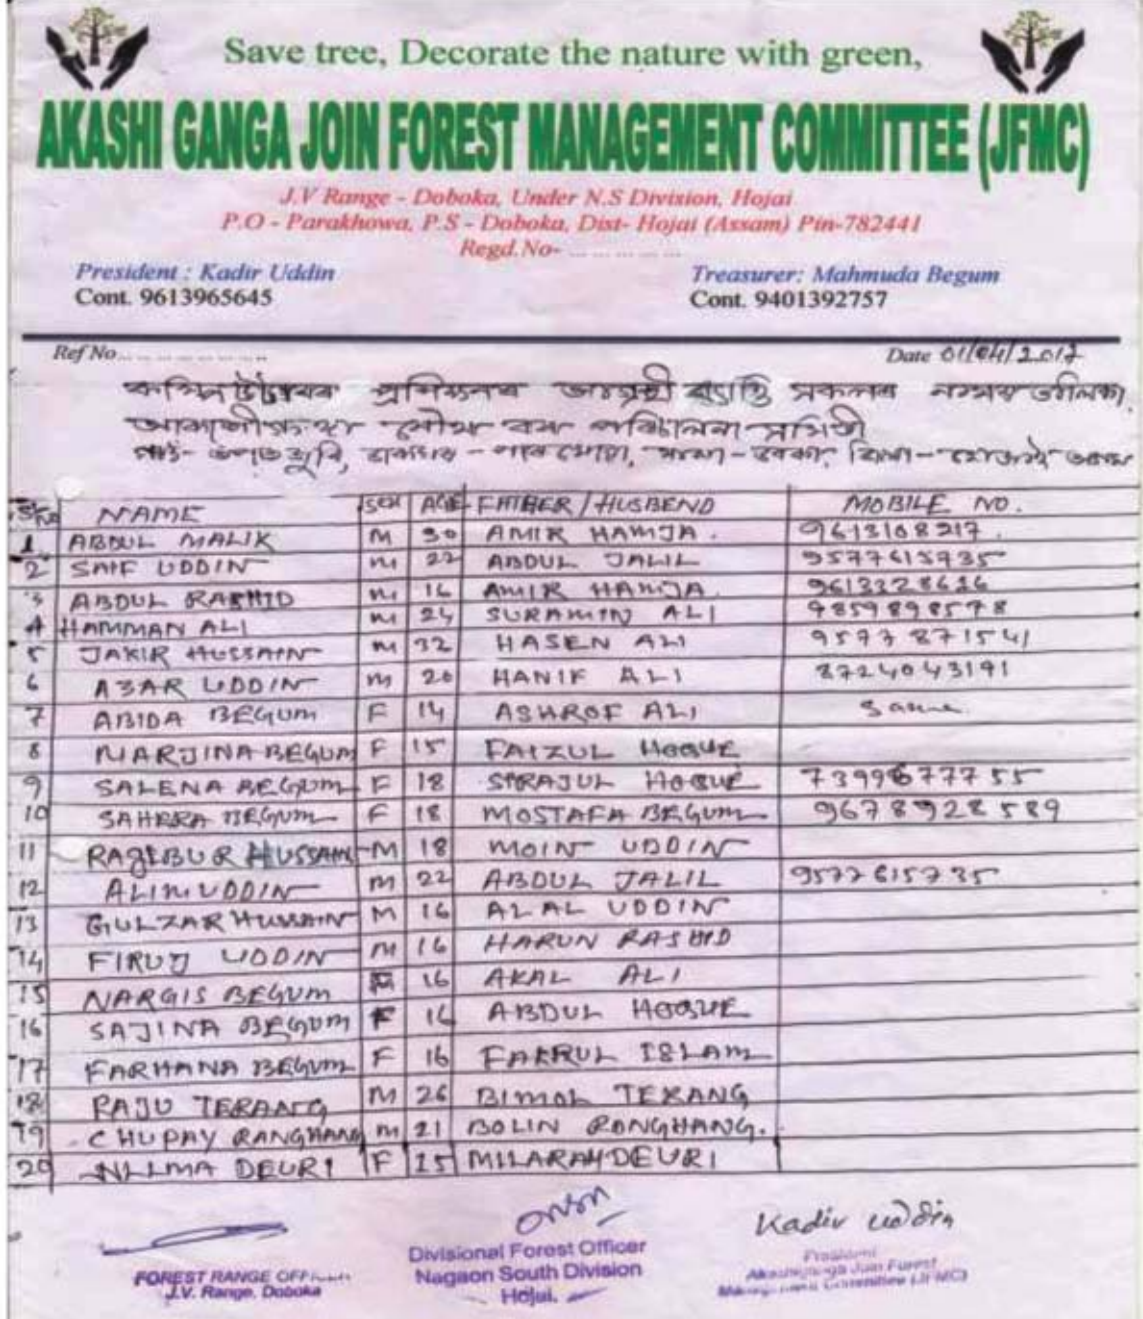 Save tree, Decorate the nature with green,
AKASHI GANGA JOIN FOREST MANAGEMENT COMMITTEE (JFMC)
J.V Range - Doboka, Under N.S Division, Hojai
P.O - Parakhowa, P.S - Doboka, Dist- Hojai (Assam) Pin-782441
Regd.No- ... ... ... ... ...
President : Kadir Uddin Treasurer: Mahmuda Begum
Cont. 9613965645 Cont. 9401392757
Ref No... ... ... ... ... ... ... Date 01/04/2017
প্ৰশিক্ষনৰ আগ্ৰহী ব্যাক্তি সকলৰ নামৰ তালিকা
যৌথ বন পৰিচালনা সমিতী
S/No NAME SEX AGE FATHER / HUSBEND MOBILE NO.
1 ABDUL MALIK M 30 AMIR HAMJA. 9613108217.
2 SAIF UDDIN M 22 ABDUL JALIL 9577615735
3 ABDUL RASHID M 16 AMIR HAMJA. 9613328616
4 HAMMAN ALI M 24 SURAMIN ALI 9859898578
5 JAKIR HUSSAIN M 32 HASEN ALI 9577871541
6 AZAR UDDIN M 20 HANIF ALI 8724043191
7 ABIDA BEGUM F 14 ASHROF ALI Same
8 MARJINA BEGUM F 15 FAIZUL HOQUE
9 SALENA BEGUM F 18 SIRAJUL HOQUE 7399677755
10 SAHERA BEGUM F 18 MOSTAFA BEGUM 9678928589
11 RAGIBUR HUSSAIN M 18 MOIN UDDIN
12 ALIMUDDIN M 22 ABDUL JALIL 9577615735
13 GULZAR HUSSAIN M 16 ALAL UDDIN
14 FIRUJ UDDIN M 16 HARUN RASHID
15 NARGIS BEGUM F 16 AKAL ALI
16 SAJINA BEGUM F 16 ABDUL HOQUE
17 FARHANA BEGUM F 16 FAKRUL ISLAM
18 RAJU TERANG M 26 BIMOL TERANG
19 CHUPAY RANGHANG M 21 BOLIN RONGHANG.
20 NILIMA DEURI F 25 MILARAM DEURI
Kadir Uddin
FOREST RANGE OFFICER
J.V. Range, Doboka
Divisional Forest Officer
Nagaon South Division
Hojai.
President
Akashiganga Join Forest
Management Committee (JFMC)